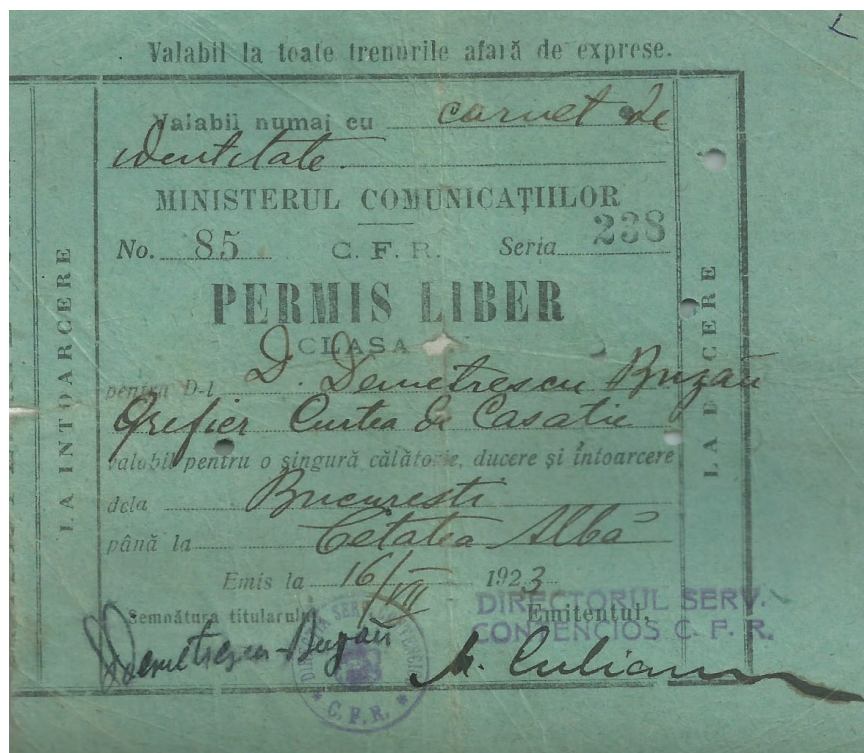 Valabil la toate trenurile afară de exprese.
Valabil numai cu carnet de
identitate.
MINISTERUL COMUNICAȚIILOR
No. 85 C. F. R. Seria 238
PERMIS LIBER
CLASA
pentru D-l D. Demetrescu Buzău
Grefier Curtea de Casatie
valabil pentru o singură călătorie, ducere și întoarcere
dela Bucuresti
până la Cetatea Albă
Emis la 16/VII 1923
Semnătura titularului, Emitentul,
DIRECTORUL SERV.
CONTENCIOS C. F. R.
Demetrescu-Buzău
C.F.R.
LA INTOARCERE
LA DUCERE